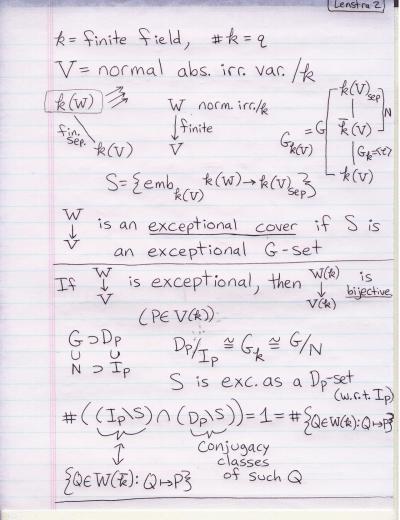 Lenstra 2
k = finite field, #k = q
V = normal abs. irr. var. /k
k(W)
fin. sep.
k(V)
W norm. irr./k
↓ finite
V
G_{k(V)} = G
k(V)_{sep}
N
k̄(V)
G_k = <τ>
k(V)
S = {emb_{k(V)} k(W) → k(V)_{sep}}
W ↓ V is an exceptional cover if S is
an exceptional G-set
If W ↓ V is exceptional, then W(k) ↓ V(k) is bijective
(P∈V(k))
G ⊃ D_P
∪ ∪
N ⊃ I_P
D_P/I_P ≅ G_k ≅ G/N
S is exc. as a D_P-set
(w.r.t. I_P)
#((I_P\S) ∩ (D_P\S)) = 1 = #{Q∈W(k): Q↦P}
↕
{Q∈W(k̄): Q↦P}
Conjugacy
classes
of such Q